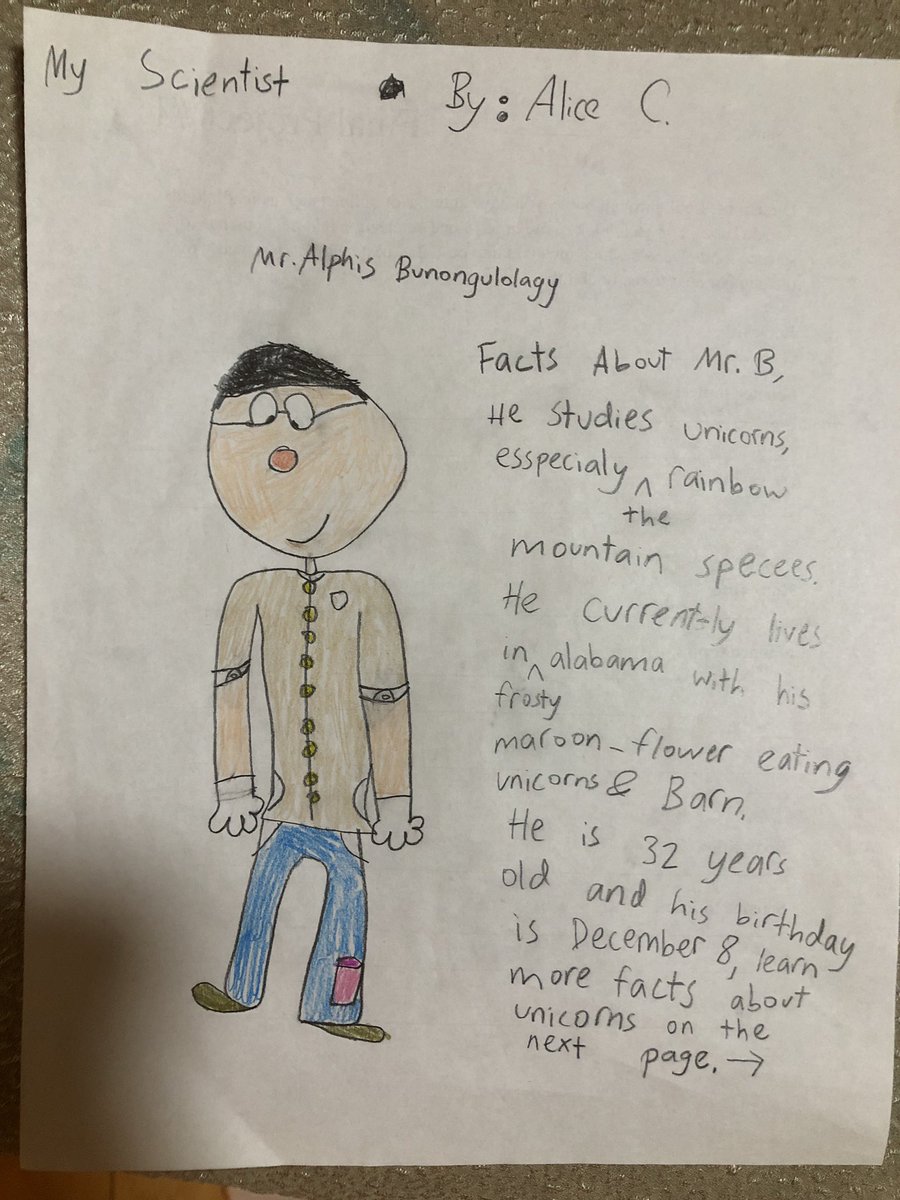 My Scientist By: Alice C.
Mr. Alphis Bunongulolagy
Facts About Mr. B,
He studies unicorns,
esspecialy ^ rainbow
the
mountain specees.
He currently lives
in ^ alabama with his
frosty
maroon-flower eating
unicorns & Barn.
He is 32 years
old and his birthday
is December 8, learn
more facts about
unicorns on the
next page. →